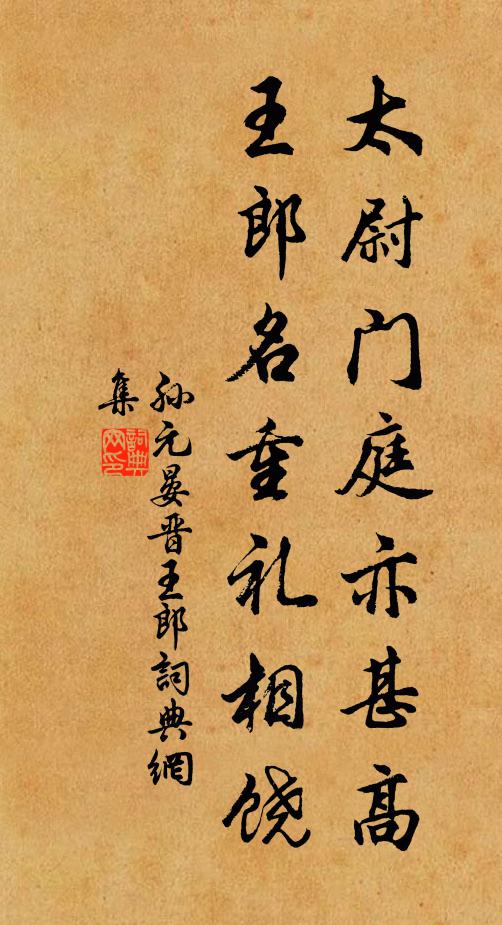 太尉门庭亦甚高
王郎名重礼相饶
孙元晏晋王郎詞典網
集
詞典
网印